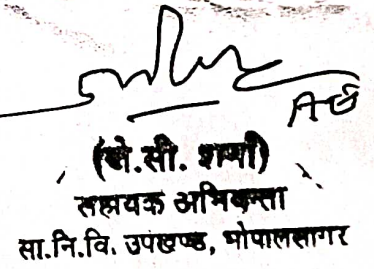 (जे.सी. शर्मा)
सहायक अभियन्ता
सा.नि.वि. उपखण्ड, भोपालसागर